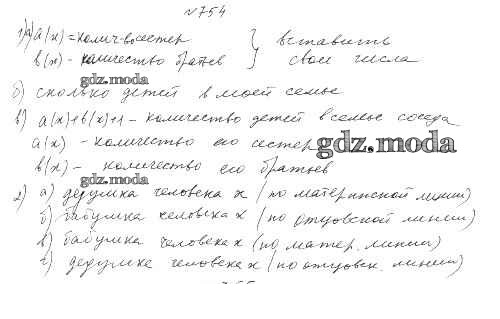 №754
1) а) a(x) = колич-во сестер } вставить
b(x) - количество братьев } свои числа
gdz.moda
б) сколько детей в моей семье
в) a(x)+b(x)+1 - количество детей в семье соседа
a(x) - количество его сестер
gdz.moda
b(x) - количество его братьев
gdz.moda
2) а) дедушка человека x (по материнской линии)
б) бабушка человека x (по отцовской линии)
в) бабушка человека x (по матер. линии)
г) дедушка человека x (по отцовск. линии)